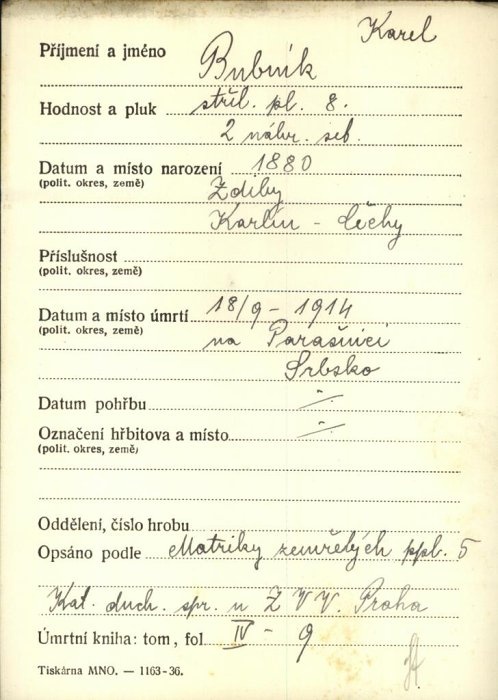 Karel
Příjmení a jméno Bubník
Hodnost a pluk střel. pl. 8.
2 náhr. set.
Datum a místo narození 1880
(polit. okres, země) Zdiby
Karlín - Čechy
Příslušnost
(polit. okres, země)
Datum a místo úmrtí 18/9 - 1914
(polit. okres, země) na Parašnici
Srbsko
Datum pohřbu -/.
Označení hřbitova a místo -/.
(polit. okres, země)
Oddělení, číslo hrobu
Opsáno podle Matriky zemřelých ppl. 5
Kat. duch. spr. u Z V V. Praha
Úmrtní kniha: tom, fol. IV - 9
Tiskárna MNO. — 1163-36.